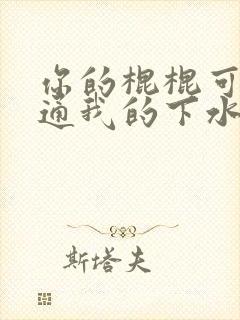 你的棍棍可
通我的下水
斯塔夫